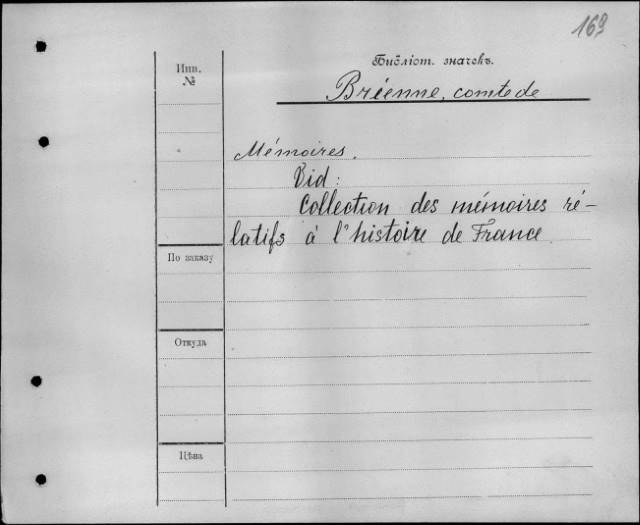 169
Библіот. значекъ.
Инв. №
Brienne, comte de
Mémoires.
Vid:
Collection des mémoires ré-
latifs à l'histoire de France
По заказу
Откуда
Цѣна